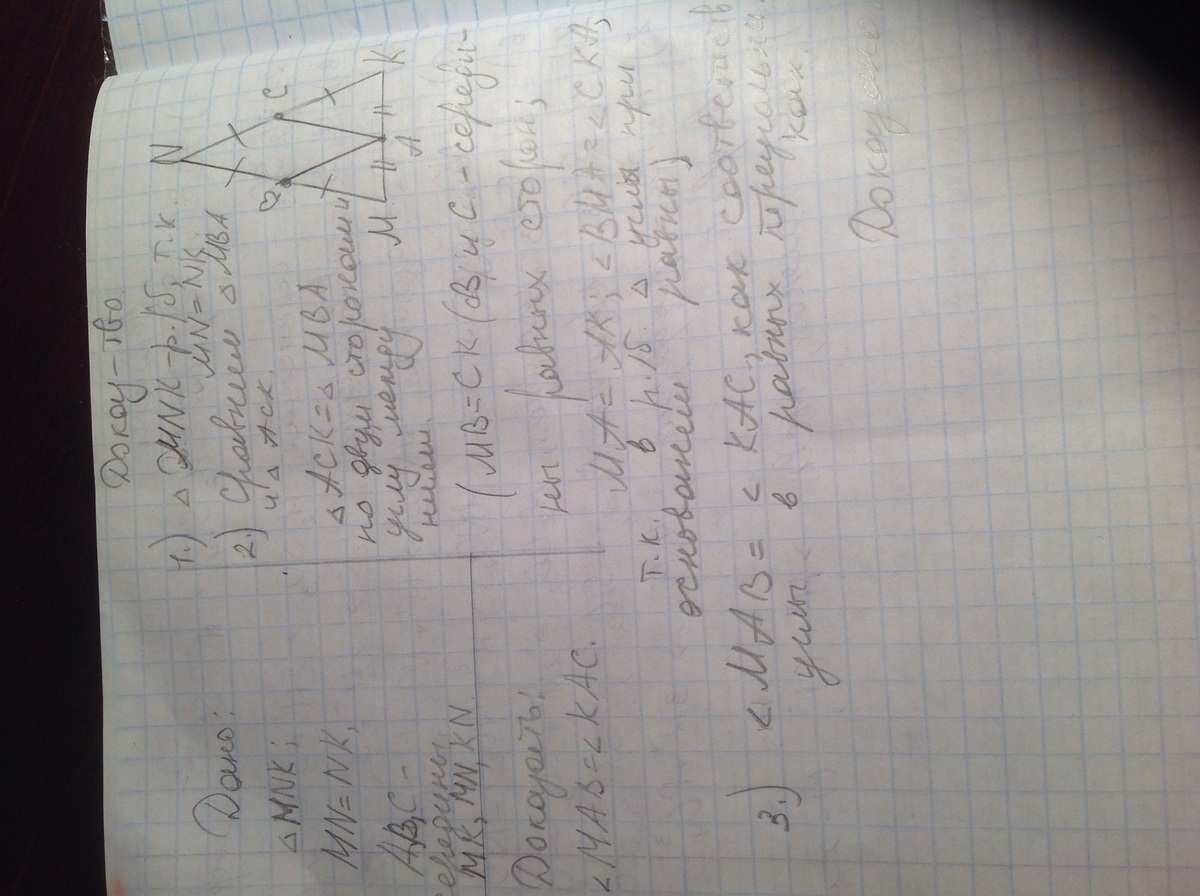 Дано:
△ MNK;
MN=NK,
A,B,C –
середины
MK, MN, KN
Доказать:
<MAB=<KAC.
Доказ-тво
1.) △ MNK – р.|б, т.к.
MN=NK.
2.) Сравним △ MBA
и △ ACK.
△ ACK = △ MBA
по двум сторонам и
углу между
ними.
(MB=CK (B и C – середи-
ны равных сторон;
MA=AK; <BMA=<CKA,
т.к. в р.|б △ углы при
основании равны)
3.) <MAB = <KAC, как соответств
углы в равных треугольни-
ках.
Доказано.
N
B
C
M
A
K